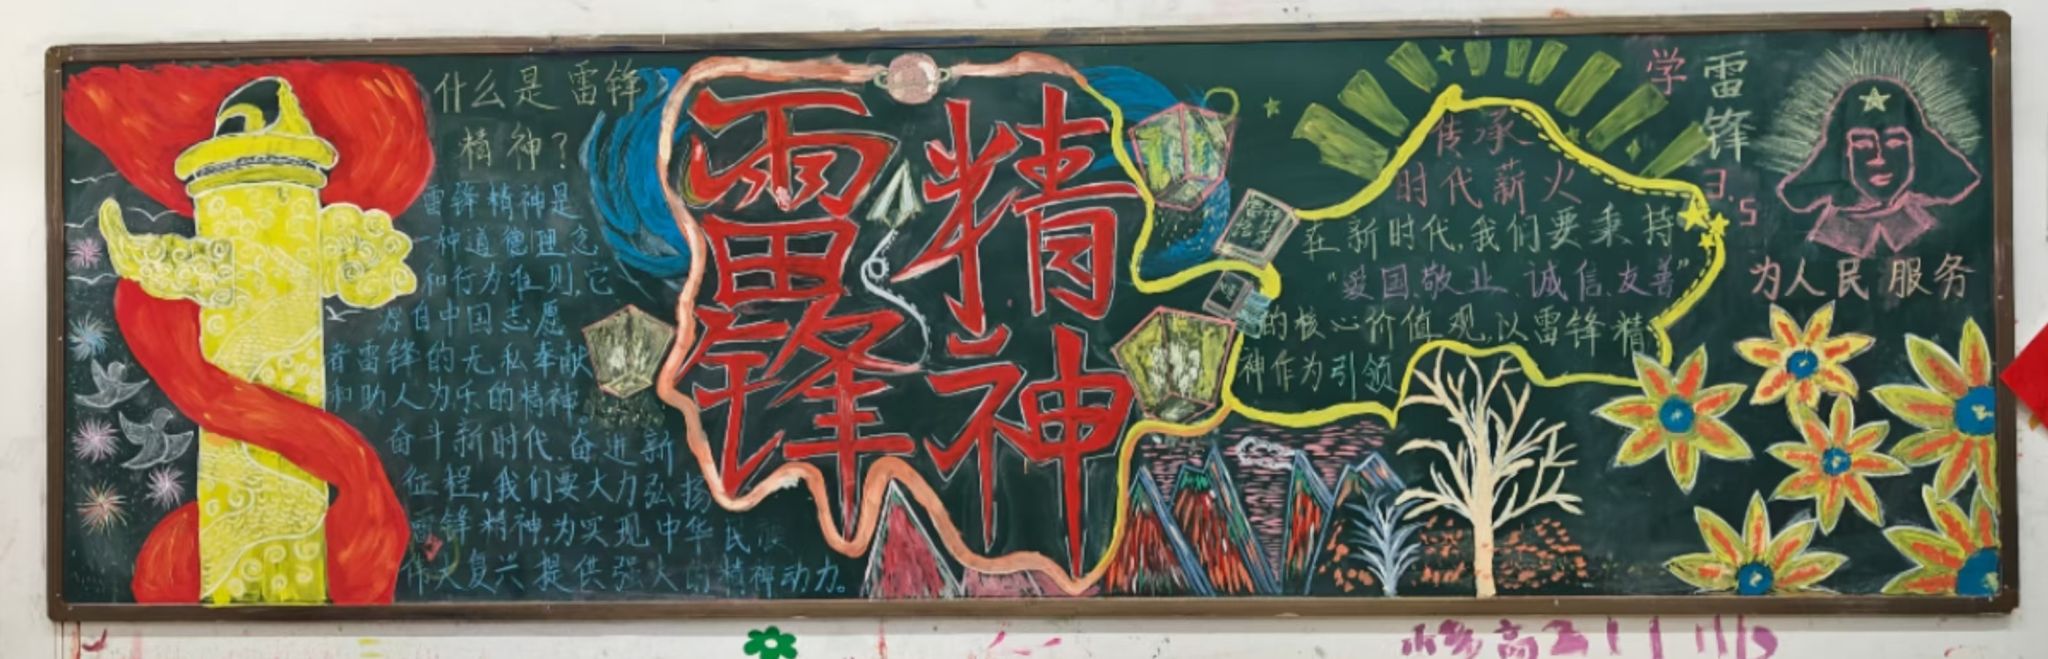 什么是雷锋
精神?
雷锋精神是
一种道德理念
和行为准则,它
源自中国志愿
者雷锋的无私奉献
和助人为乐的精神。
奋斗新时代,奋进新
征程,我们要大力弘扬
雷锋精神,为实现中华民族
伟大复兴提供强大的精神动力。
雷锋
精神
传承
时代薪火
在新时代,我们要秉持
“爱国、敬业、诚信、友善”
的核心价值观,以雷锋精
神作为引领
学
雷锋
3.5
为人民服务